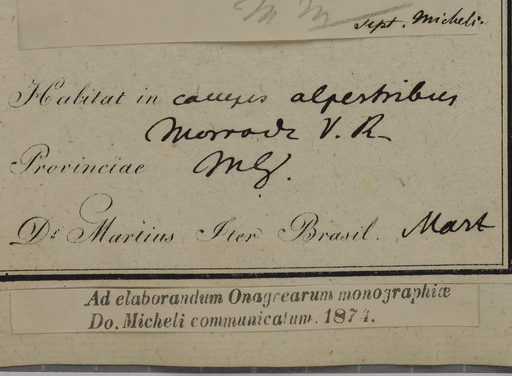 sept. Micheli.
Habitat in campis alpestribus
V. R
Provinciae MG.
Dr. Martius Iter Brasil. Mart
Ad elaborandum Onagrearum monographiæ
Do. Micheli communicatum. 1874.